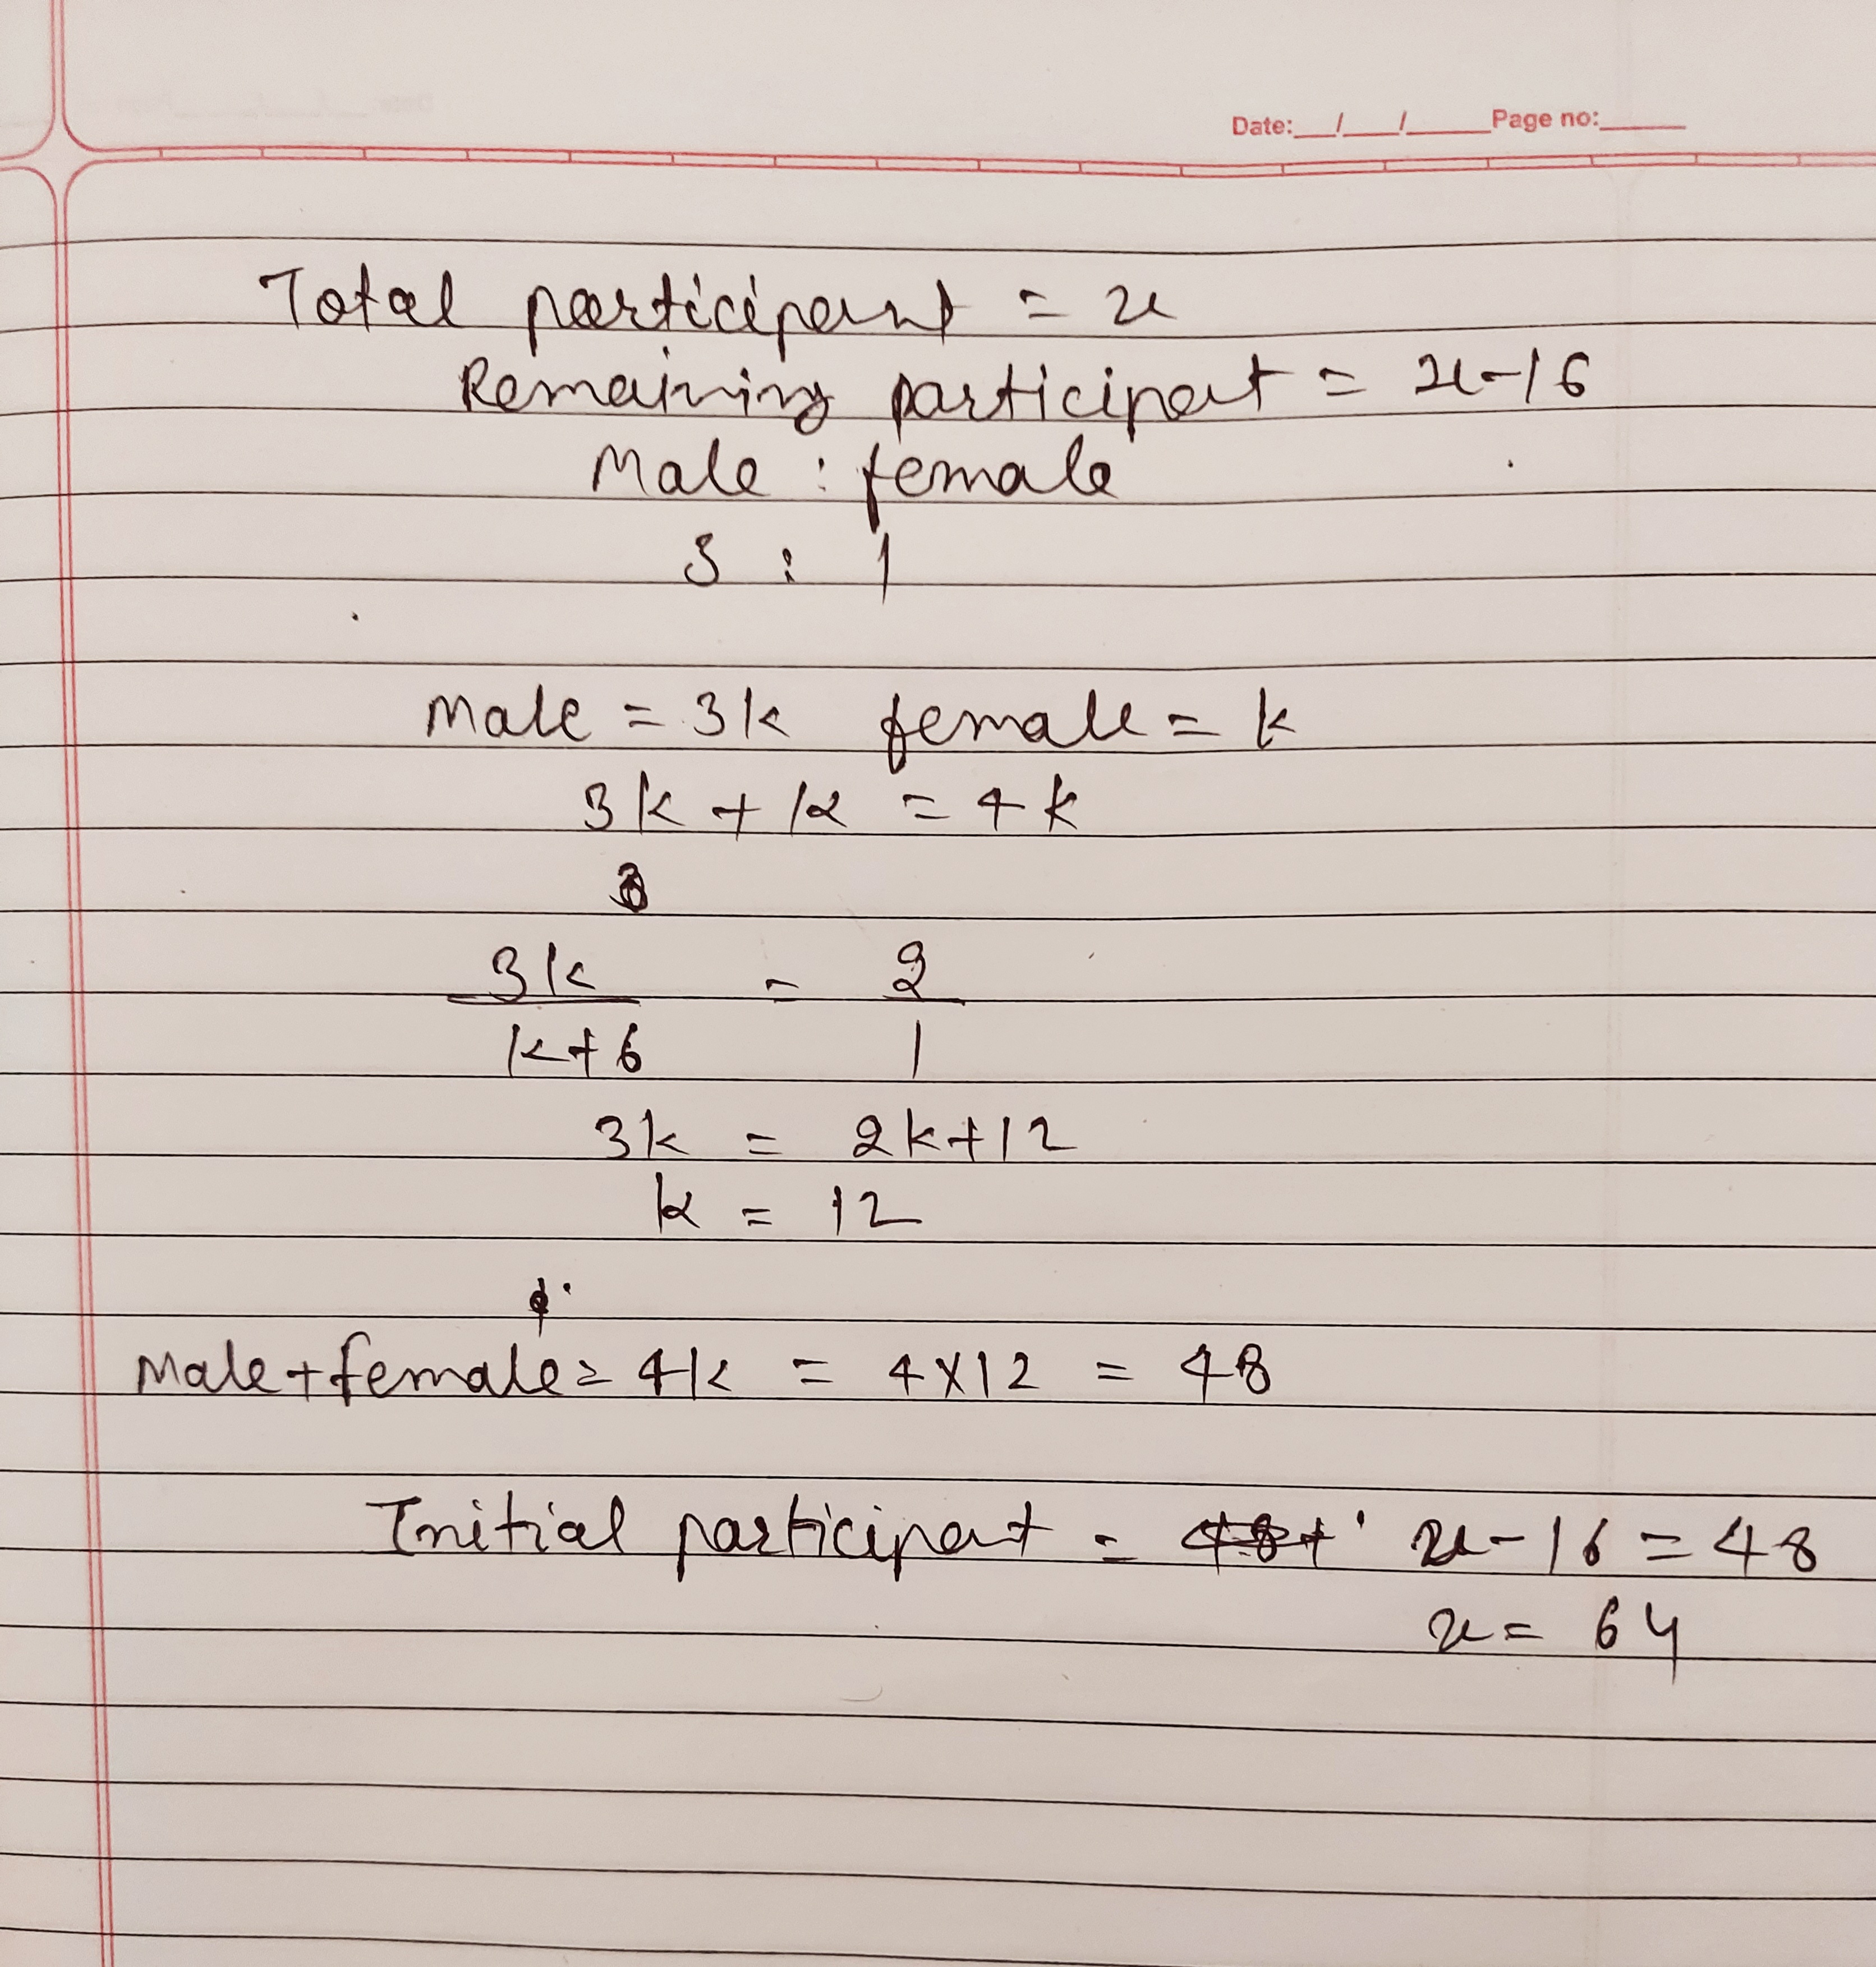 Date:__/__/____ Page no:_____
Total participant = x
Remaining participant = x-16
Male : female
3 : 1
Male = 3k female = k
3k + k = 4k
3k = 2
k+6 1
3k = 2k+12
k = 12
Male + female = 4k = 4×12 = 48
Initial participant = 48+ x-16 = 48
x = 64